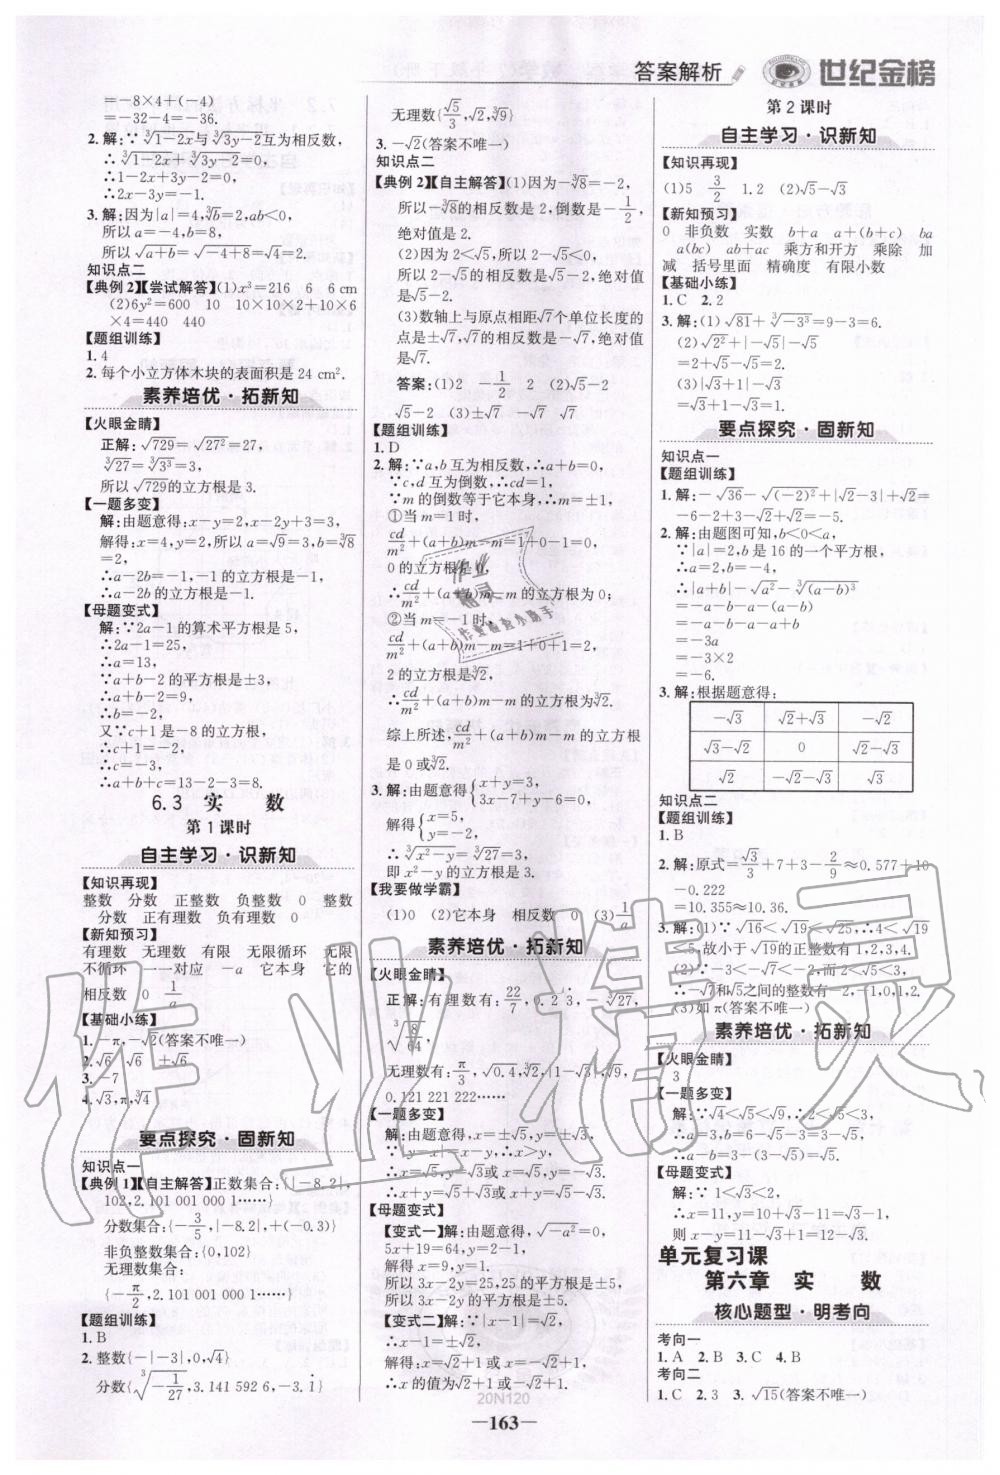 答案解析 世纪金榜
=-8×4+(-4)
=-32-4=-36.
2.解:∵∛(1-2x)与∛(3y-2)互为相反数,
∴∛(1-2x)+∛(3y-2)=0,
∴1-2x+3y-2=0,
∴2x-3y=-1.
3.解:因为|a|=4,∛b=2,ab<0,
所以a=-4,b=8,
所以√(a+b)=√(-4+8)=√4=2.
知识点二
【典例2】【尝试解答】(1)x³=216 6 6 cm
(2)6y²=600 10 10×10×2+10×6
×4=440 440
【题组训练】
1.4
2.每个小立方体木块的表面积是24 cm².
素养培优·拓新知
【火眼金睛】
正解:√729=√27²=27,
∛27=∛3³=3,
所以√729的立方根是3.
【一题多变】
解:由题意得:x-y=2,x-2y+3=3,
解得:x=4,y=2,所以a=√9=3,b=∛8
=2,
∴a-2b=-1,-1的立方根是-1.
∴a-2b的立方根是-1.
【母题变式】
解:∵2a-1的算术平方根是5,
∴2a-1=25,
∴a=13,
∵a+b-2的平方根是±3,
∴a+b-2=9,
∴b=-2,
又∵c+1是-8的立方根,
∴c+1=-2,
∴c=-3,
∴a+b+c=13-2-3=8.
6.3 实 数
第1课时
自主学习·识新知
【知识再现】
整数 分数 正整数 负整数 0 整数
分数 正有理数 负有理数 0
【新知预习】
有理数 无理数 有限 无限循环 无限
不循环 一一对应 -a 它本身 它的
相反数 0 1/a
【基础小练】
1.-π,-√2(答案不唯一)
2.√6 √6 ±√6
3.-7
4.√3,π,∛4
要点探究·固新知
知识点一
【典例1】【自主解答】正数集合:{|-8.2|,
102,2.101 001 000 1……}
分数集合:{-3/5,|-8.2|,+(-0.3)}
非负整数集合:{0,102}
无理数集合:
{-π/2,2.101 001 000 1……}
【题组训练】
1.B
2.整数{-|-3|,0,√4}
分数{∛(-1/27),3.141 592 6,-3.1̇}
无理数{√5/3,√2,∛9}
3.-√2(答案不唯一)
知识点二
【典例2】【自主解答】(1)因为-∛8=-2,
所以-∛8的相反数是2,倒数是-1/2,
绝对值是2.
(2)因为2<√5,所以2-√5<0,
所以2-√5的相反数是√5-2,绝对值
是√5-2.
(3)数轴上与原点相距√7个单位长度的
点是±√7,√7的相反数是-√7,绝对值
是√7.
答案:(1)2 -1/2 2 (2)√5-2
√5-2 (3)±√7 -√7 √7
【题组训练】
1.D
2.解:∵a,b互为相反数,∴a+b=0,
∵c,d互为倒数,∴cd=1,
∵m的倒数等于它本身,∴m=±1,
①当m=1时,
cd/m²+(a+b)m-m=1+0-1=0,
0的立方根是0,
∴cd/m²+(a+b)m-m的立方根为0;
②当m=-1时,
cd/m²+(a+b)m-m=1+0+1=2,
2的立方根是∛2,
∴cd/m²+(a+b)m-m的立方根为∛2.
综上所述,cd/m²+(a+b)m-m的立方根
是0或∛2.
3.解:由题意得{x+y=3,
3x-7+y+6=0,
解得{x=5,
y=-2,
∴∛(x²-y)=∛27=3,
即x²-y的立方根是3.
【我要做学霸】
(1)0 (2)它本身 相反数 0 (3)1/a
素养培优·拓新知
【火眼金睛】
正解:有理数有:22/7,0.2̇3̇,-∛27,
∛(8/64),
无理数有:π/3,√0.4,√2,|1-√3|,√9,
0.121 221 222……
【一题多变】
解:由题意得,x=±√5,y=±√3,
∵|x-y|=x-y,∴x>y,
∴x=√5,y=√3或x=√5,y=-√3,
∴x+y=√5+√3或x+y=√5-√3.
【母题变式】
【变式一】解:由题意得,√(-a²)=0,
5x+19=64,2x-y=17,
解得x=9,y=1.
所以3x-2y=25,25的平方根是±5,
所以3x-2y的平方根是±5.
【变式二】解:∵|x-1|=√2,
∴x-1=±√2,
解得:x=1+√2或x=1-√2,
∴x的值为√2+1或1-√2.
第2课时
自主学习·识新知
【知识再现】
(1)5 3/2 1.2 (2)√5-√3
【新知预习】
0 非负数 实数 b+a a+(b+c) ba
a(bc) ab+ac 乘方和开方 乘除 加
减 括号里面 精确度 有限小数
【基础小练】
1.C 2.2
3.解:(1)√81+∛(-3³)=9-3=6.
(2)√2²+|-√5|-√5
=2+√5-√5=2.
(3)|√3+1|-√3|
=√3+1-√3=1.
要点探究·固新知
知识点一
【题组训练】
1.解:-√36-√(-2)²+|√2-3|+√2=
-6-2+3-√2+√2=-5.
2.解:由题图可知,b<0<a,
∵|a|=2,b是16的一个平方根,
∴a=2,b=-4,
∴|a+b|-√a²-∛(a-b)³
=-a-b-a-(a-b)
=-a-b-a-a+b
=-3a
=-3×2
=-6.
3.解:根据题意得:
-√3 √2+√3 -√2
√3-√2 0 √2-√3
√2 -√2-√3 √3
知识点二
【题组训练】
1.B
2.解:原式=√3/3+7+3-2/9≈0.577+10
-0.222
=10.355≈10.36.
3.解:(1)∵√16<√19<√25,∴4<√19
<5,故小于√19的正整数有1,2,3,4.
(2)∵-2<-√3<-1,而2<√5<3,
∴-√7和√5之间的整数有-2,-1,0,1,2.
(3)如π(答案不唯一)
素养培优·拓新知
【火眼金睛】
3
【一题多变】
解:∵√4<√5<√9,∴2<√5<3,
∴a=3,b=6-√5-3=3-√5,
∴a-b=3-(3-√5)=√5.
【母题变式】
解:∵1<√3<2,
∴x=11,y=10+√3-11=√3-1,
则x-y=11-√3+1=12-√3.
单元复习课
第六章 实 数
核心题型·明考向
考向一
1.A 2.B 3.C 4.B
考向二
1.C 2.3 3.√15(答案不唯一)
20N120
—163—
作业精灵
作业精灵
作业检查小助手